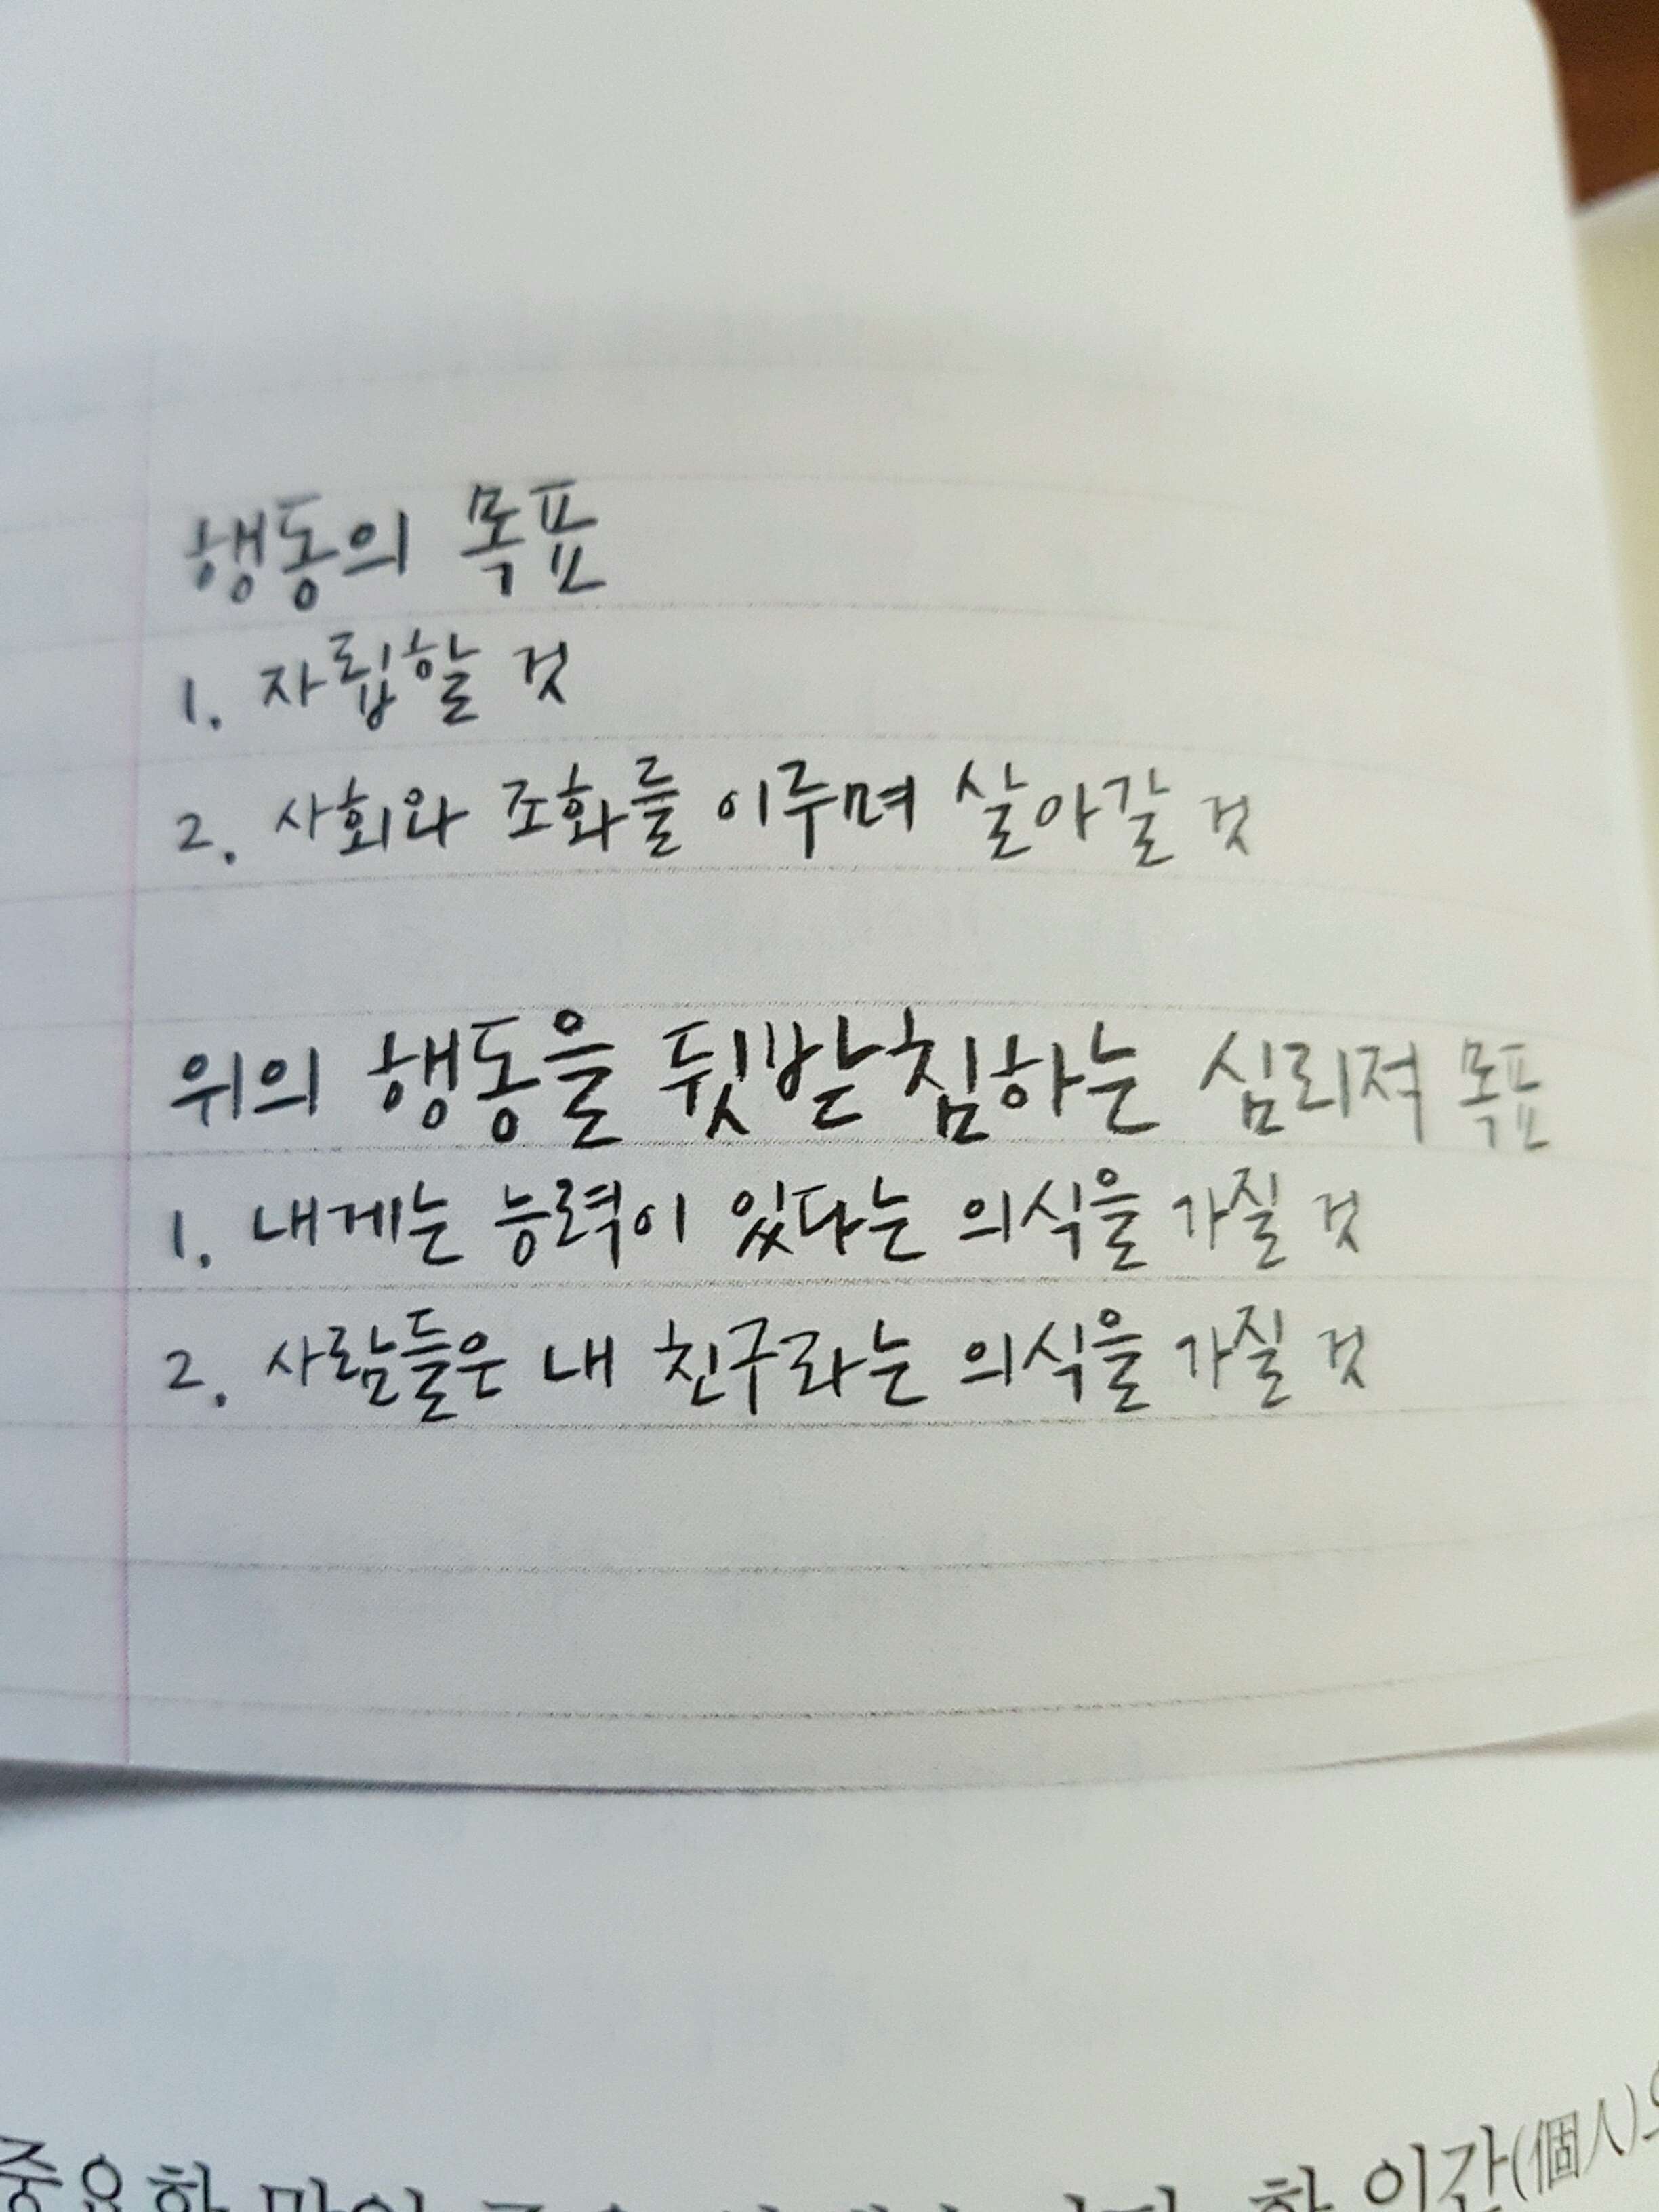 행동의 목표
1. 자립할 것
2. 사회와 조화를 이루며 살아갈 것
위의 행동을 뒷받침하는 심리적 목표
1. 내게는 능력이 있다는 의식을 가질 것
2. 사람들은 내 친구라는 의식을 가질 것
한 인간(個人)